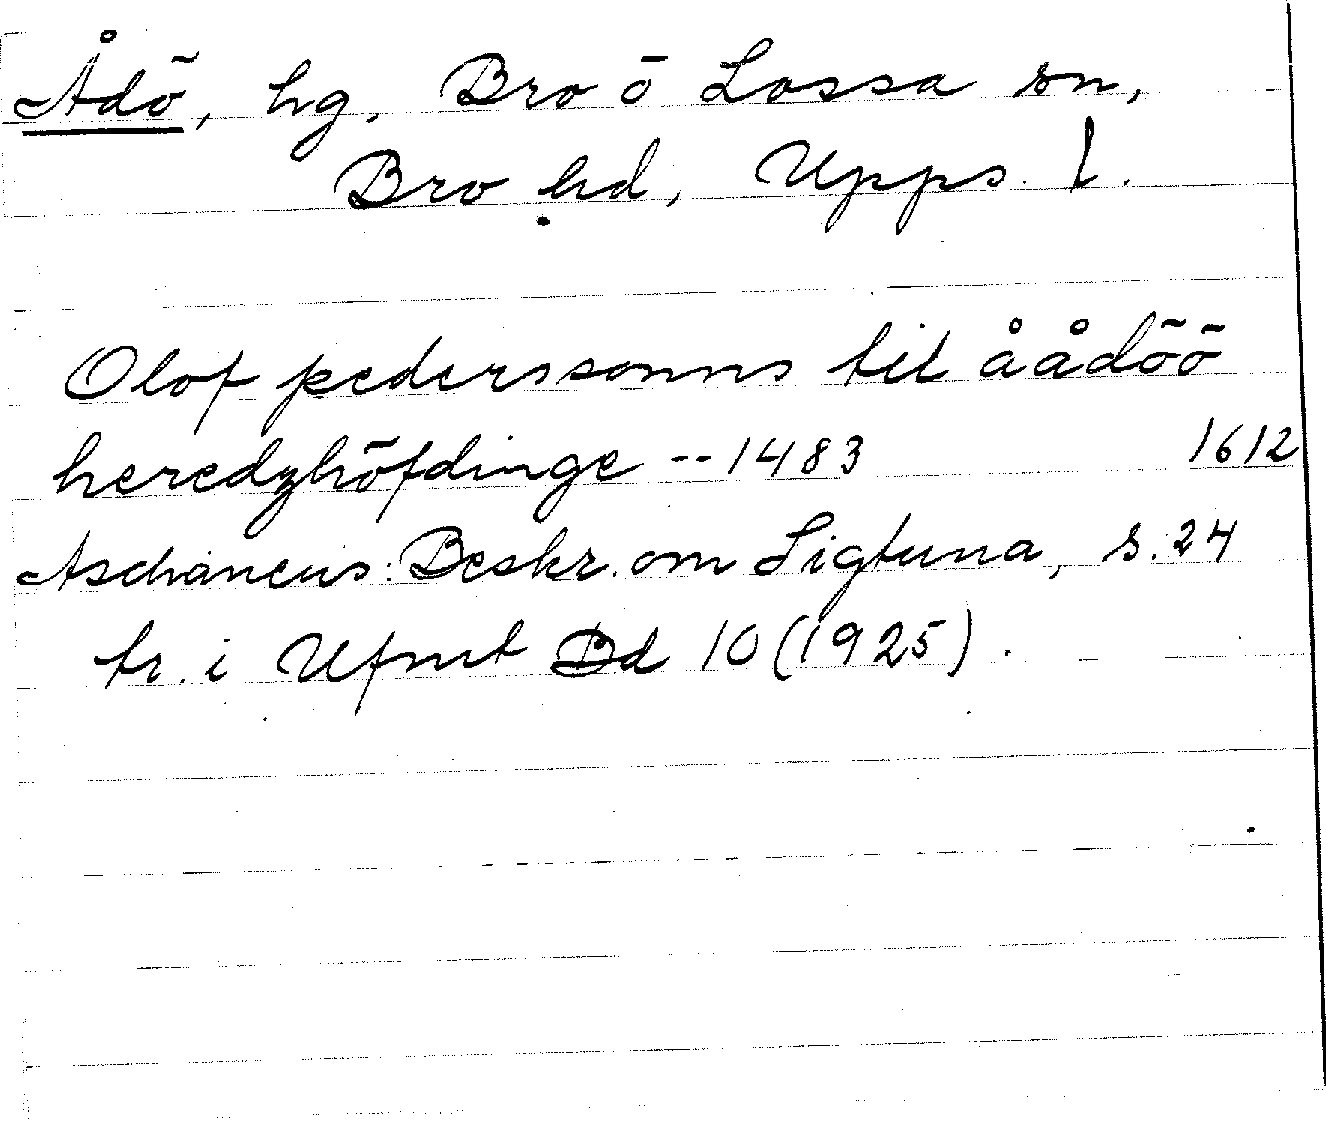 Ådö, hg, Bro o Lossa sn,
Bro hd, Upps. l.
Olof pederssonns til åådöö
heredzhöfdinge -- 1483 1612
Aschaneus: Beskr. om Sigtuna, s. 24
tr. i Ufmt Bd 10 (1925).